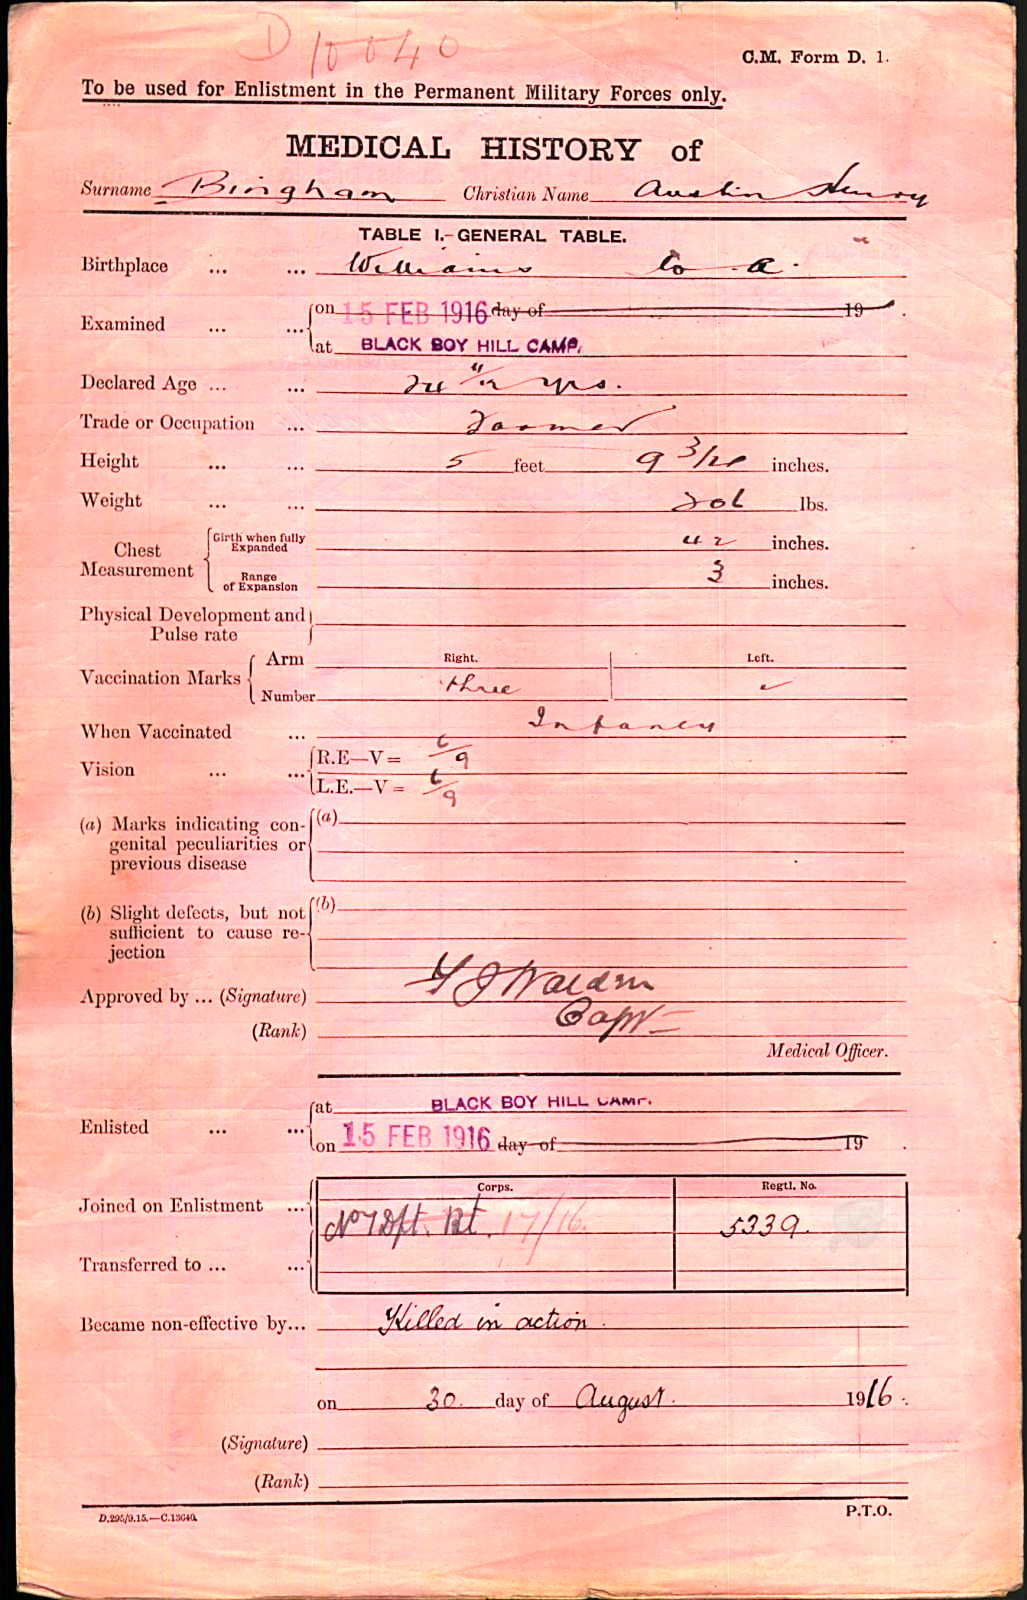 D 10040
C.M. Form D. 1.
To be used for Enlistment in the Permanent Military Forces only.
MEDICAL HISTORY of
Surname Bingham Christian Name Austin Henry
TABLE I.-GENERAL TABLE.
Birthplace ... ... Williams
Examined ... ... on 15 FEB 1916 day of 19 .
at BLACK BOY HILL CAMP.
Declared Age ... ... 24 11/12 yrs.
Trade or Occupation ... Farmer
Height ... ... 5 feet 9 inches.
Weight ... ... 206 lbs.
Chest Measurement Girth when fully Expanded 42 inches.
Range of Expansion 3 inches.
Physical Development and Pulse rate
Vaccination Marks Arm Right. Left.
Number three
When Vaccinated ... Infancy
Vision ... ... R.E—V = 6/9
L.E.—V = 6/9
(a) Marks indicating con- (a)
genital peculiarities or
previous disease
(b) Slight defects, but not (b)
sufficient to cause re-
jection
Approved by ... (Signature)
(Rank) Capt
Medical Officer.
Enlisted ... ... at BLACK BOY HILL CAMP.
on 15 FEB 1916 day of 19 .
Corps. Regtl. No.
Joined on Enlistment ... No 7 Dpt. Bt. 17/16. 5339.
Transferred to ... ...
Became non-effective by... Killed in action.
on 30. day of August. 1916.
(Signature)
(Rank)
D.295/9.15.—C.13640. P.T.O.